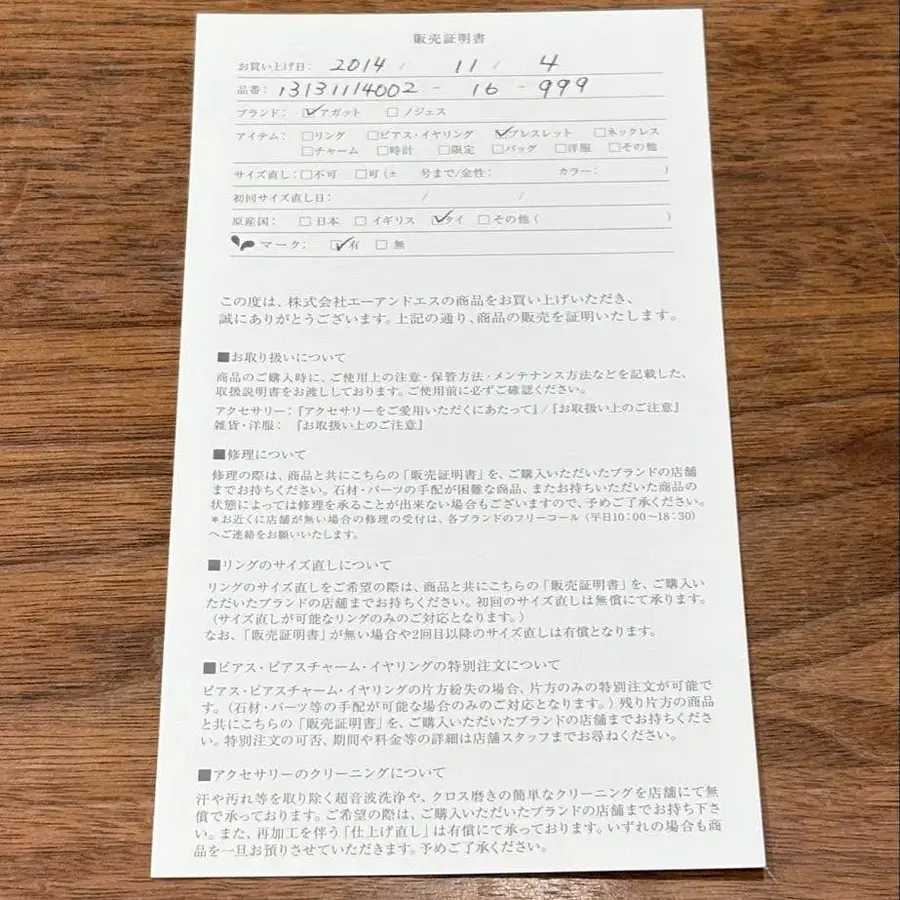 販売証明書
お買い上げ日： 2014 / 11 / 4
品番： 13131114002 - 16 - 999
ブランド： ☑アガット □ノジェス
アイテム： □リング □ピアス・イヤリング ☑ブレスレット □ネックレス
□チャーム □時計 □限定 □バッグ □洋服 □その他
サイズ直し：□不可 □可（± 号まで/金性： カラー： ）
初回サイズ直し日： / /
原産国： □日本 □イギリス ☑タイ □その他（ ）
マーク： ☑有 □無
この度は、株式会社エーアンドエスの商品をお買い上げいただき、
誠にありがとうございます。上記の通り、商品の販売を証明いたします。
■お取り扱いについて
商品のご購入時に、ご使用上の注意・保管方法・メンテナンス方法などを記載した、
取扱説明書をお渡ししております。ご使用前に必ずご確認ください。
アクセサリー：『アクセサリーをご愛用いただくにあたって』/『お取扱い上のご注意』
雑貨・洋服： 『お取扱い上のご注意』
■修理について
修理の際は、商品と共にこちらの「販売証明書」を、ご購入いただいたブランドの店舗
までお持ちください。石材・パーツの手配が困難な商品、またお持ちいただいた商品の
状態によっては修理を承ることが出来ない場合もございますので、予めご了承ください。
＊お近くに店舗が無い場合の修理の受付は、各ブランドのフリーコール（平日10：00〜18：30）
へご連絡をお願いいたします。
■リングのサイズ直しについて
リングのサイズ直しをご希望の際は、商品と共にこちらの「販売証明書」を、ご購入い
ただいたブランドの店舗までお持ちください。初回のサイズ直しは無償にて承ります。
（サイズ直しが可能なリングのみのご対応となります。）
なお、「販売証明書」が無い場合や2回目以降のサイズ直しは有償となります。
■ピアス・ピアスチャーム・イヤリングの特別注文について
ピアス・ピアスチャーム・イヤリングの片方紛失の場合、片方のみの特別注文が可能で
す。（石材・パーツ等の手配が可能な場合のみのご対応となります。）残り片方の商品
と共にこちらの「販売証明書」を、ご購入いただいたブランドの店舗までお持ちくださ
い。特別注文の可否、期間や料金等の詳細は店舗スタッフまでお尋ねください。
■アクセサリーのクリーニングについて
汗や汚れ等を取り除く超音波洗浄や、クロス磨きの簡単なクリーニングを店舗にて無
償で承っております。ご希望の際は、ご購入いただいたブランドの店舗までお持ち下さ
い。また、再加工を伴う「仕上げ直し」は有償にて承っております。いずれの場合も商
品を一旦お預りさせていただきます。予めご了承ください。